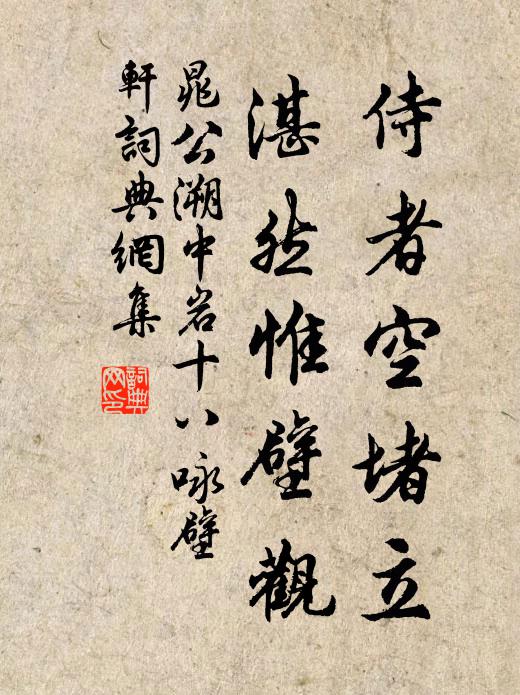 侍者空堵立
湛然惟壁觀
晁公溯中岩十八咏壁
軒詞典網集
詞典网印